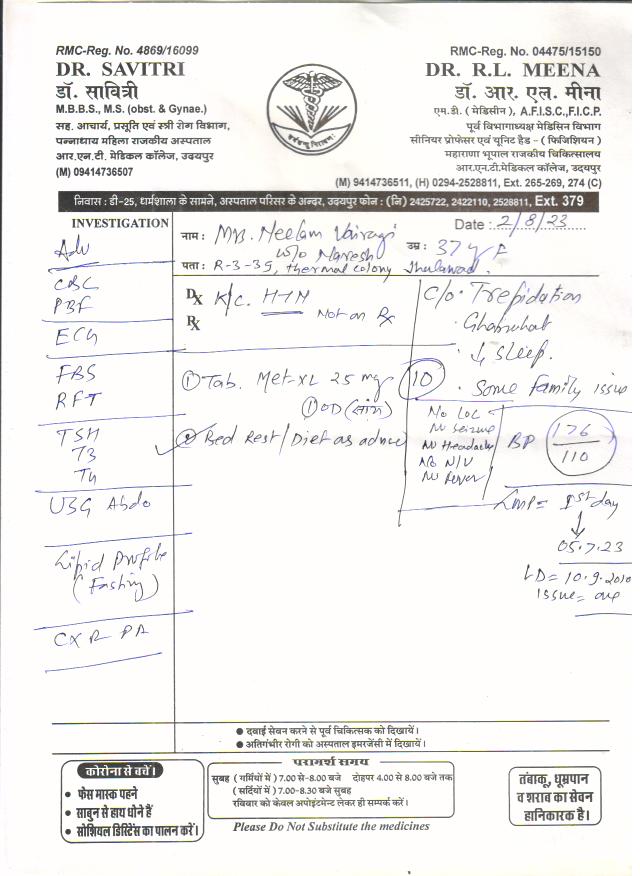 RMC-Reg. No. 4869/16099
DR. SAVITRI
डॉ. सावित्री
M.B.B.S., M.S. (obst. & Gynae.)
सह. आचार्य, प्रसूति एवं स्त्री रोग विभाग,
पन्नाधाय महिला राजकीय अस्पताल
आर.एन.टी. मेडिकल कॉलेज, उदयपुर
(M) 09414736507
RMC-Reg. No. 04475/15150
DR. R.L. MEENA
डॉ. आर. एल. मीना
एम.डी. (मेडिसीन), A.F.I.S.C.,F.I.C.P.
पूर्व विभागाध्यक्ष मेडिसिन विभाग
सीनियर प्रोफेसर एवं यूनिट हैड - (फिजिशियन)
महाराणा भूपाल राजकीय चिकित्सालय
आर.एन.टी.मेडिकल कॉलेज, उदयपुर
(M) 9414736511, (H) 0294-2528811, Ext. 265-269, 274 (C)
निवास : डी-25, धर्मशाला के सामने, अस्पताल परिसर के अन्दर, उदयपुर फोन : (नि) 2425722, 2422110, 2528811, Ext. 379
INVESTIGATION
Adv
CBC
PBF
ECG
FBS
RFT
TSH
T3
T4
USG Abdo
Lipid Profile
(Fasting)
CXR PA
नाम : Mrs. Neelam Vairagi
Date : 2/8/23
w/o Naresh
उम्र : 37 y F
पता : R-3-35, thermal colony Jhalawad.
Dx K/C. HTN
Rx Not on Rx
① Tab. Met-XL 25 mg (10)
① OD (सांय)
② Bed Rest / Diet as advice
C/o Trepidation
· Ghabrahat
· ↓ Sleep.
· Some family issue
No LOC
No Seizure
No Headache
No N/V
No Fever
BP 176/110
LMP = 1st day
↓
05.7.23
LD = 10.9.2010
Issue = one
● दवाई सेवन करने से पूर्व चिकित्सक को दिखायें।
● अतिगंभीर रोगी को अस्पताल इमरजेंसी में दिखायें।
कोरोना से बचें।
• फेस मास्क पहने
• साबुन से हाथ धोने हैं
• सोशियल डिस्टेंस का पालन करें।
परामर्श समय
सुबह (गर्मियों में) 7.00 से-8.00 बजे दोहपर 4.00 से 8.00 बजे तक
(सर्दियों में) 7.00-8.30 बजे सुबह
रविवार को केवल अपोइंटमेन्ट लेकर ही सम्पर्क करें।
Please Do Not Substitute the medicines
तंबाकू, धूम्रपान
व शराब का सेवन
हानिकारक है।